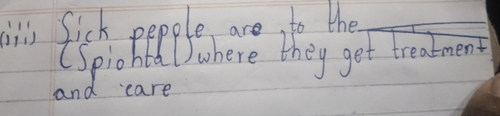 (iii) Sick pepole are to the
(Spiohtal) where they get treatment
and care